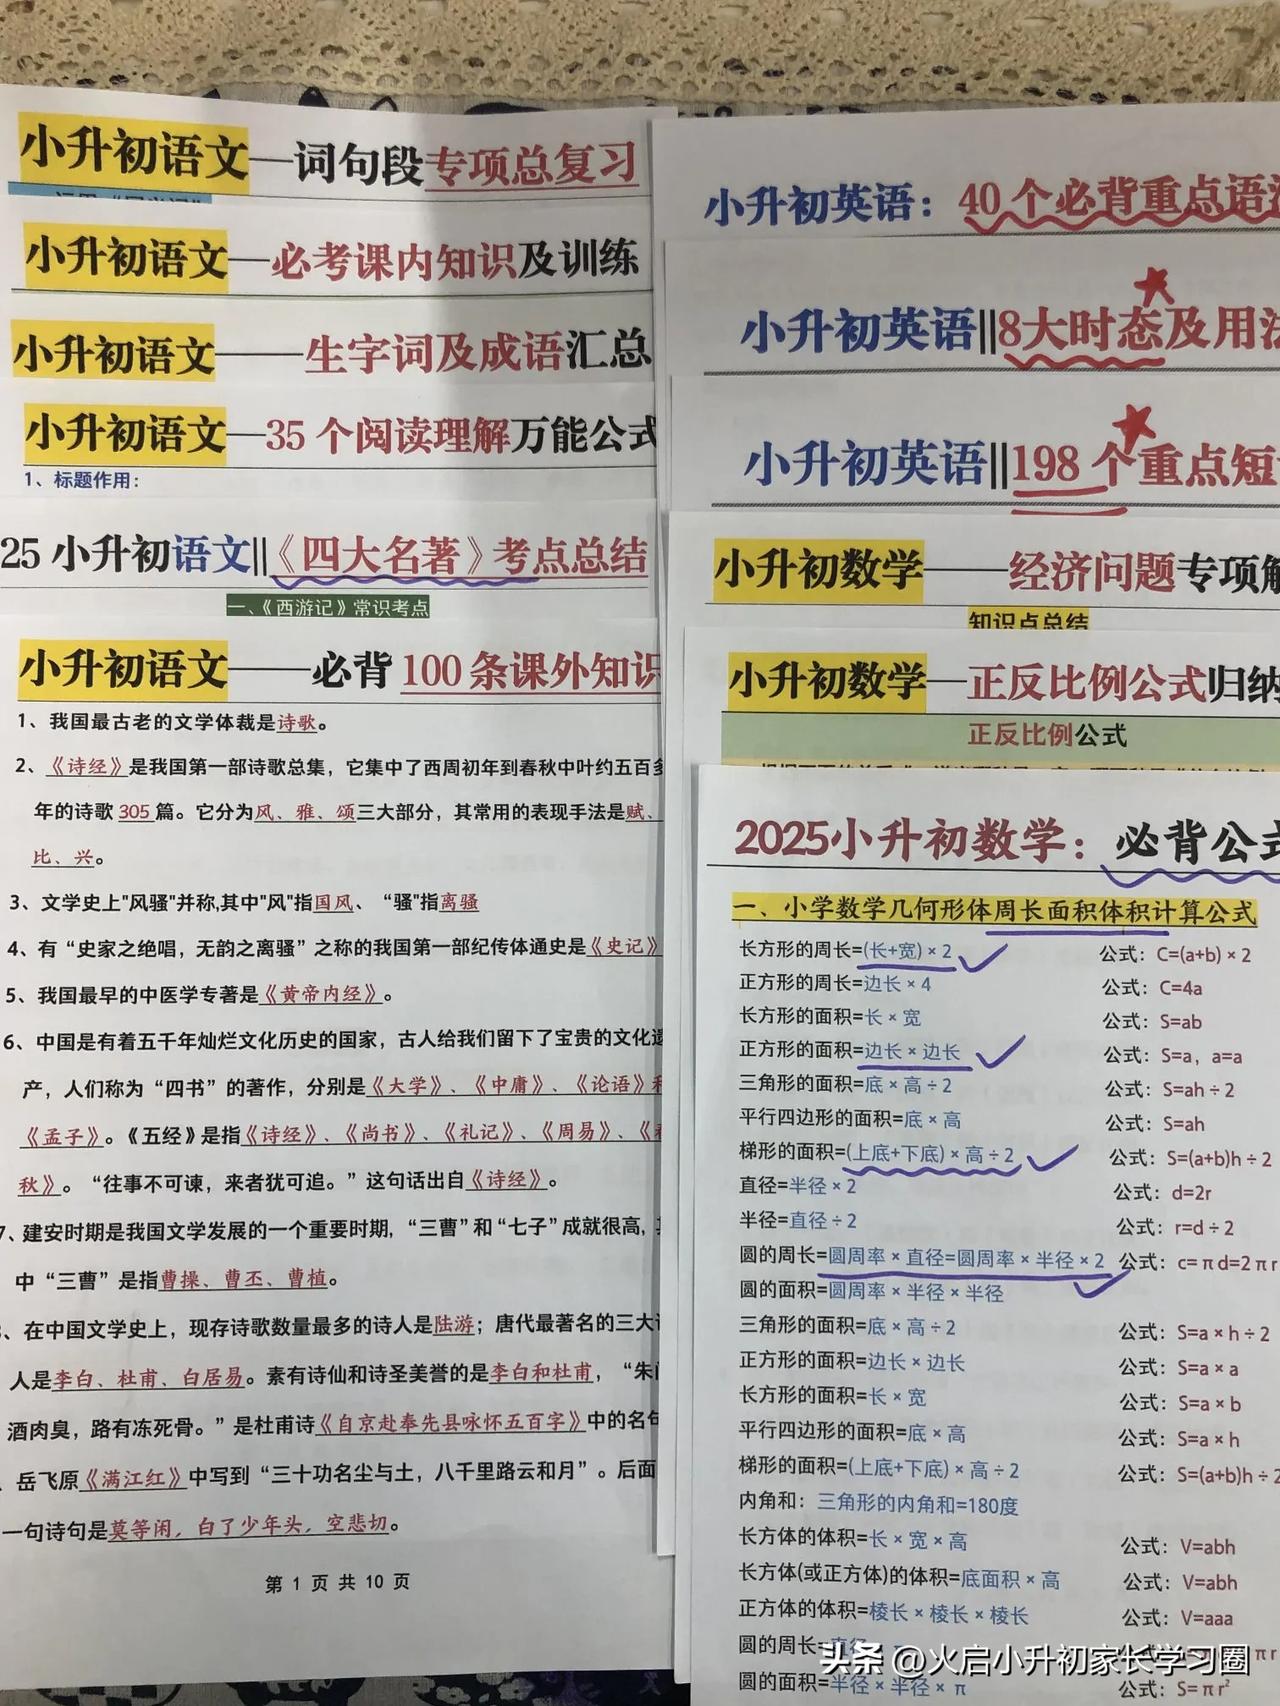 小升初语文—词句段专项总复习
小升初语文—必考课内知识及训练
小升初语文——生字词及成语汇总
小升初语文—35个阅读理解万能公式
1、标题作用：
25 小升初语文||《四大名著》考点总结
一、《西游记》常识考点
小升初语文——必背 100 条课外知识
1、我国最古老的文学体裁是诗歌。
2、《诗经》是我国第一部诗歌总集，它集中了西周初年到春秋中叶约五百多
年的诗歌 305 篇。它分为风、雅、颂三大部分，其常用的表现手法是赋、
比、兴。
3、文学史上"风骚"并称,其中"风"指国风、“骚”指离骚
4、有“史家之绝唱，无韵之离骚”之称的我国第一部纪传体通史是《史记》
5、我国最早的中医学专著是《黄帝内经》。
6、中国是有着五千年灿烂文化历史的国家，古人给我们留下了宝贵的文化遗
产，人们称为“四书”的著作，分别是《大学》、《中庸》、《论语》和
《孟子》。《五经》是指《诗经》、《尚书》、《礼记》、《周易》、《春
秋》。“往事不可谏，来者犹可追。”这句话出自《诗经》。
7、建安时期是我国文学发展的一个重要时期，“三曹”和“七子”成就很高，其
中“三曹”是指曹操、曹丕、曹植。
、在中国文学史上，现存诗歌数量最多的诗人是陆游；唐代最著名的三大诗
人是李白、杜甫、白居易。素有诗仙和诗圣美誉的是李白和杜甫，“朱门
酒肉臭，路有冻死骨。”是杜甫诗《自京赴奉先县咏怀五百字》中的名句
、岳飞原《满江红》中写到“三十功名尘与土，八千里路云和月”。后面
一句诗句是莫等闲，白了少年头，空悲切。
第 1 页 共 10 页
小升初英语：40 个必背重点语法
小升初英语||8大时态及用法
小升初英语||198 个重点短
小升初数学——经济问题专项解
知识点总结
小升初数学—正反比例公式归纳
正反比例公式
2025小升初数学：必背公式
一、小学数学几何形体周长面积体积计算公式
长方形的周长=(长+宽)×2 公式：C=(a+b)×2
正方形的周长=边长×4 公式：C=4a
长方形的面积=长×宽 公式：S=ab
正方形的面积=边长×边长 公式：S=a，a=a
三角形的面积=底×高÷2 公式：S=ah÷2
平行四边形的面积=底×高 公式：S=ah
梯形的面积=(上底+下底)×高÷2 公式：S=(a+b)h÷2
直径=半径×2 公式：d=2r
半径=直径÷2 公式：r=d÷2
圆的周长=圆周率×直径=圆周率×半径×2 公式：c=πd=2πr
圆的面积=圆周率×半径×半径
三角形的面积=底×高÷2 公式：S=a×h÷2
正方形的面积=边长×边长 公式：S=a×a
长方形的面积=长×宽 公式：S=a×b
平行四边形的面积=底×高 公式：S=a×h
梯形的面积=(上底+下底)×高÷2 公式：S=(a+b)h÷2
内角和：三角形的内角和=180度
长方体的体积=长×宽×高 公式：V=abh
长方体(或正方体)的体积=底面积×高 公式：V=abh
正方体的体积=棱长×棱长×棱长 公式：V=aaa
圆的周长=直径×π
圆的面积=半径×半径×π 公式：S=πr²
头条 @火启小升初家长学习圈